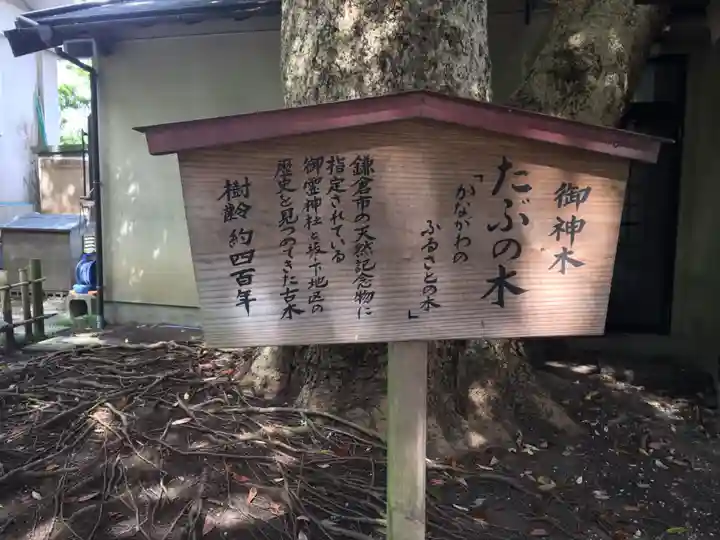 御神木
たぶの木
「かながわの
ふるさとの木」
鎌倉市の天然記念物に
指定されている
御霊神社と坂ノ下地区の
歴史を見つめてきた古木
樹齢 約四百年